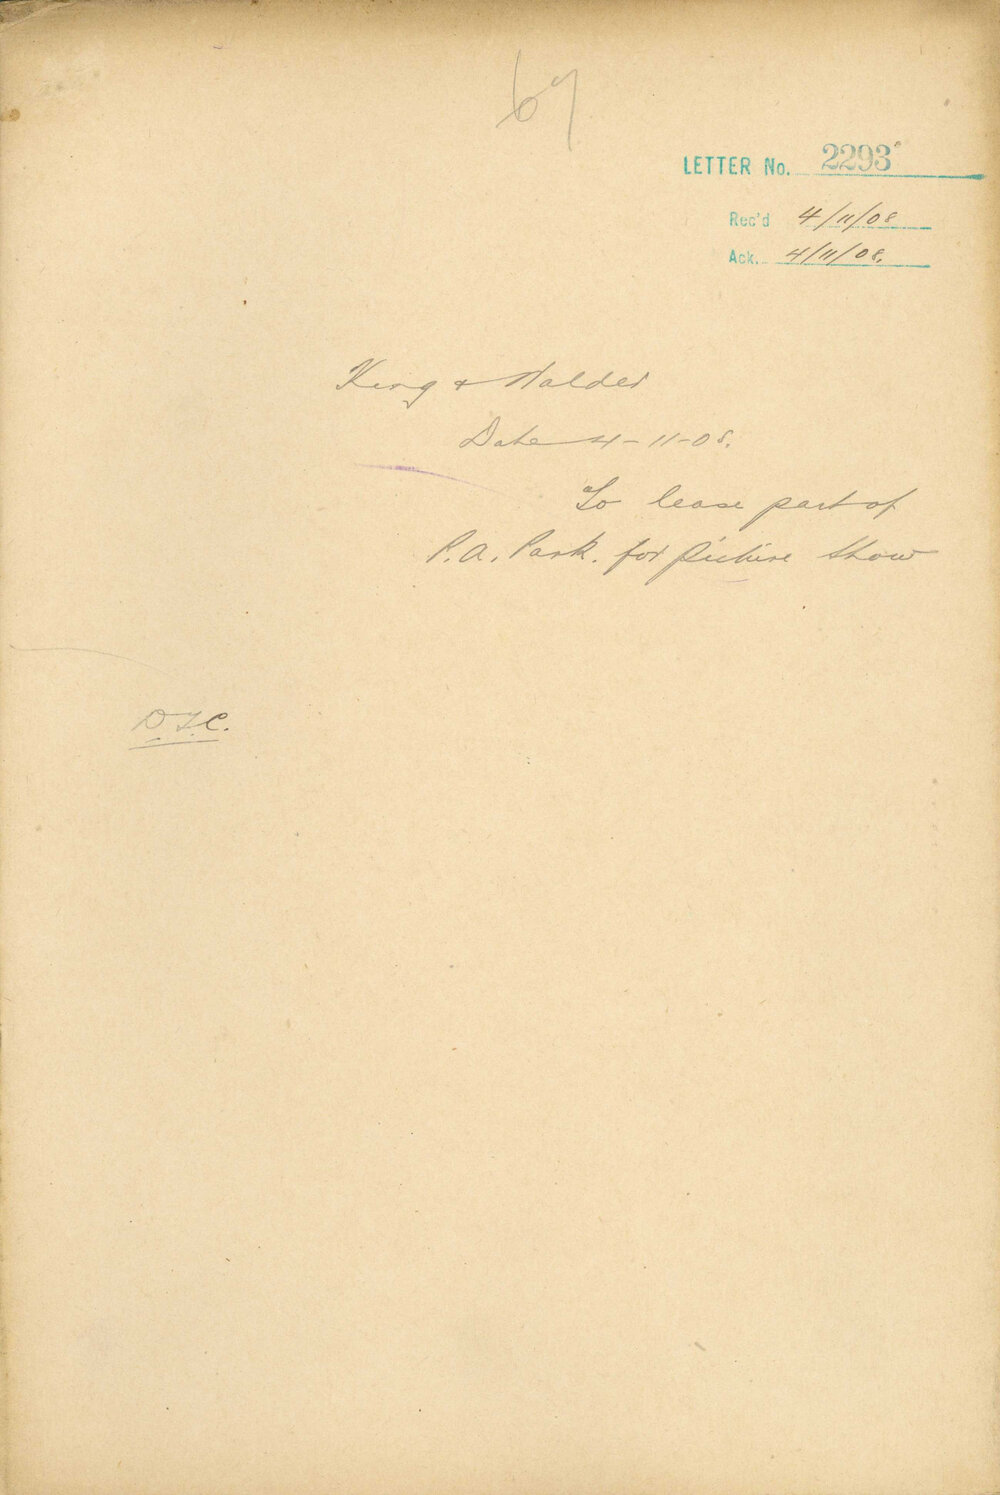 67
LETTER No. 2293
Rec'd 4/11/08
Ack. 4/11/08.
King & Walder
Date 4-11-08.
To lease part of
P.A. Park. for picture show